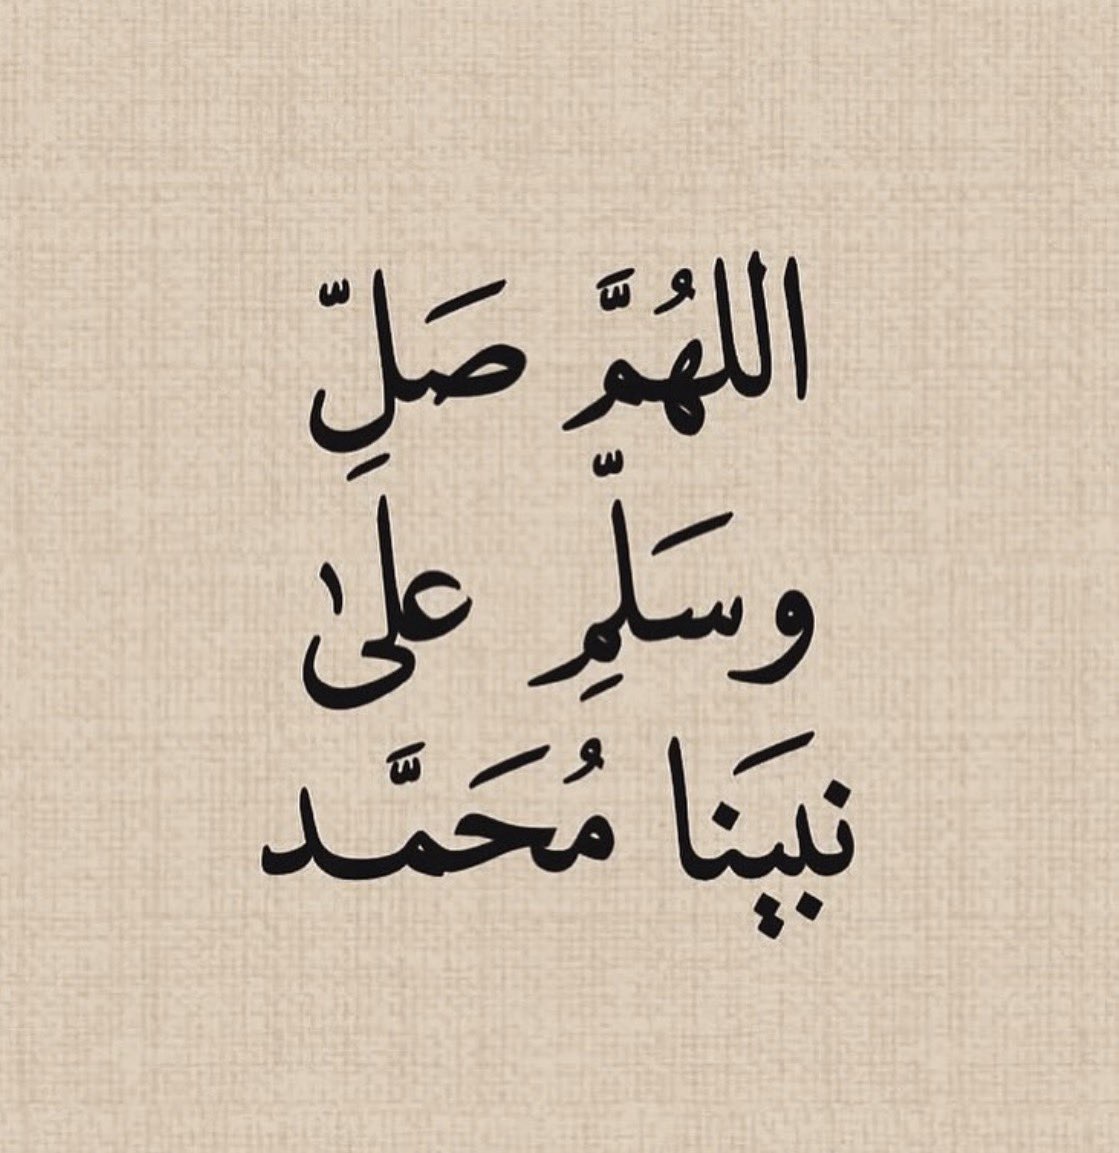 اللهُمَّ صَلِّ
وسَلِّمِ علىٰ
نبَينا مُحَمَّد